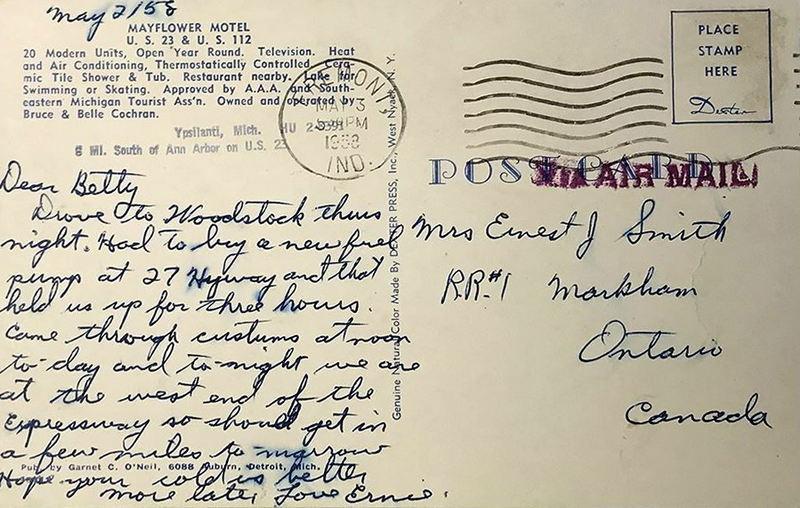 May 2/58
MAYFLOWER MOTEL
U. S. 23 & U. S. 112
20 Modern Units, Open Year Round. Television. Heat
and Air Conditioning, Thermostatically Controlled. Cera-
mic Tile Shower & Tub. Restaurant nearby. Lake for
Swimming or Skating. Approved by A.A.A. and South-
eastern Michigan Tourist Ass'n. Owned and operated by
Bruce & Belle Cochran.
Ypsilanti, Mich. HU
6 Mi. South of Ann Arbor on U.S. 23
MAY 3
PM
1958
IND.
Dear Betty
Drove to Woodstock thurs
night. Had to buy a new fuel
pump at 27 Hyway and that
held us up for three hours.
Came through custums at noon
to-day and to-night we are
at the west end of the
Expressway so should get in
a few miles to-morrow
Pub. by Garnet C. O'Neil, 6088 Auburn, Detroit, Mich.
Hope your cold is better
more later Love Ernie.
Genuine Natural Color Made By DEXTER PRESS, Inc., West Nyack, N. Y.
PLACE
STAMP
HERE
Dexter
POST CARD
VIA AIR MAIL
Mrs Ernest J Smith
RR#1 Markham
Ontario
Canada